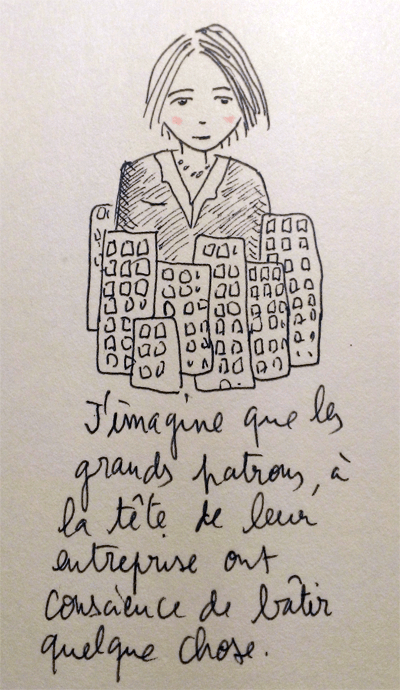 J'imagine que les
grands patrons, à
la tête de leur
entreprise ont
conscience de bâtir
quelque chose.